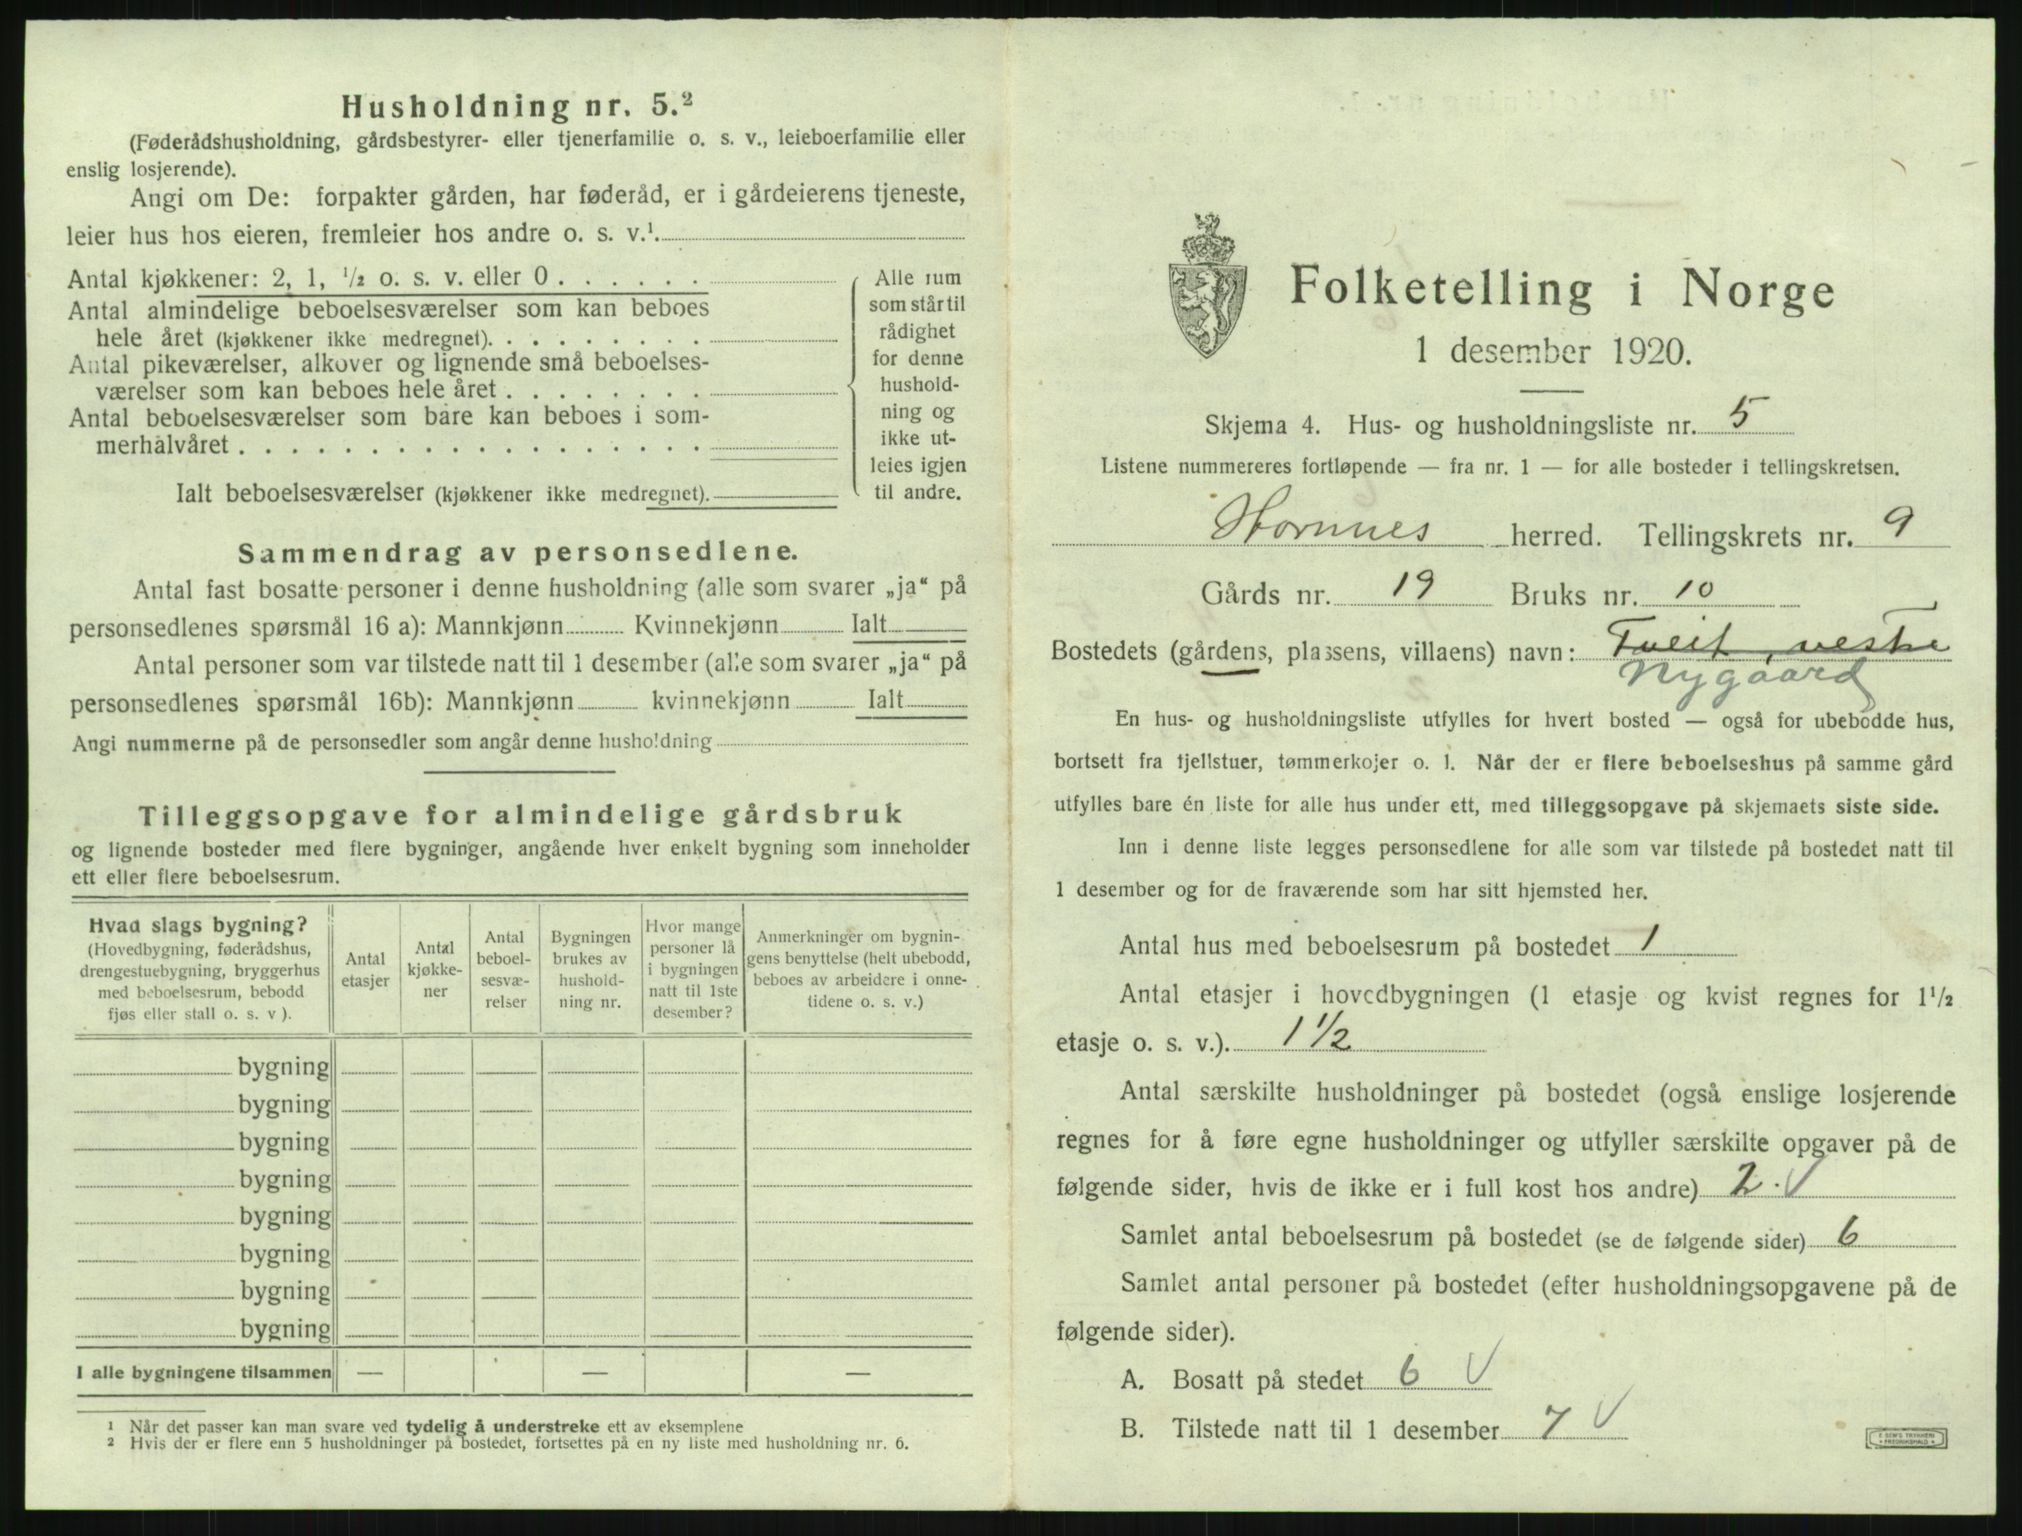 Husholdning nr. 5.²
(Føderådshusholdning, gårdsbestyrer- eller tjenerfamilie o. s. v., leieboerfamilie eller
enslig losjerende).
Angi om De: forpakter gården, har føderåd, er i gårdeierens tjeneste,
leier hus hos eieren, fremleier hos andre o. s. v.¹.
Antal kjøkkener: 2, 1, ½ o. s. v. eller 0 . . . . . .
Antal almindelige beboelsesværelser som kan beboes
hele året (kjøkkener ikke medregnet). . . . . . . . .
Antal pikeværelser, alkover og lignende små beboelses-
værelser som kan beboes hele året . . . . . . . .
Antal beboelsesværelser som bare kan beboes i som-
merhalvåret . . . . . . . . . . . . . . . . . .
Ialt beboelsesværelser (kjøkkener ikke medregnet).
Alle rum
som står til
rådighet
for denne
hushold-
ning og
ikke ut-
leies igjen
til andre.
Sammendrag av personsedlene.
Antal fast bosatte personer i denne husholdning (alle som svarer „ja“ på
personsedlenes spørsmål 16 a): Mannkjønn Kvinnekjønn Ialt
Antal personer som var tilstede natt til 1 desember (alle som svarer „ja“ på
personsedlenes spørsmål 16b): Mannkjønn kvinnekjønn Ialt
Angi nummerne på de personsedler som angår denne husholdning
Tilleggsopgave for almindelige gårdsbruk
og lignende bosteder med flere bygninger, angående hver enkelt bygning som inneholder
ett eller flere beboelsesrum.
Hvad slags bygning?
(Hovedbygning, føderådshus,
drengestuebygning, bryggerhus
med beboelsesrum, bebodd
fjøs eller stall o. s. v ).
Antal
etasjer
Antal
kjøkke-
ner
Antal
beboel-
sesvæ-
relser
Bygningen
brukes av
hushold-
ning nr.
Hvor mange
personer lå
i bygningen
natt til 1ste
desember?
Anmerkninger om bygnin-
gens benyttelse (helt ubebodd,
beboes av arbeidere i onne-
tidene o. s. v.)
bygning
bygning
bygning
bygning
bygning
bygning
bygning
bygning
I alle bygningene tilsammen — — —
¹ Når det passer kan man svare ved tydelig å understreke ett av eksemplene
² Hvis der er flere enn 5 husholdninger på bostedet, fortsettes på en ny liste med husholdning nr. 6.
Folketelling i Norge
1 desember 1920.
Skjema 4. Hus- og husholdningsliste nr. 5
Listene nummereres fortløpende — fra nr. 1 — for alle bosteder i tellingskretsen.
Hornnes herred. Tellingskrets nr. 9
Gårds nr. 19 Bruks nr. 10
Bostedets (gårdens, plassens, villaens) navn: Tveit, vestre
Nygaard
En hus- og husholdningsliste utfylles for hvert bosted — også for ubebodde hus,
bortsett fra fjellstuer, tømmerkojer o. l. Når der er flere beboelseshus på samme gård
utfylles bare én liste for alle hus under ett, med tilleggsopgave på skjemaets siste side.
Inn i denne liste legges personsedlene for alle som var tilstede på bostedet natt til
1 desember og for de fraværende som har sitt hjemsted her.
Antal hus med beboelsesrum på bostedet 1
Antal etasjer i hovedbygningen (1 etasje og kvist regnes for 1½
etasje o. s. v.). 1 ½
Antal særskilte husholdninger på bostedet (også enslige losjerende
regnes for å føre egne husholdninger og utfyller særskilte opgaver på de
følgende sider, hvis de ikke er i full kost hos andre) 2. V
Samlet antal beboelsesrum på bostedet (se de følgende sider) 6
Samlet antal personer på bostedet (efter husholdningsopgavene på de
følgende sider).
A. Bosatt på stedet 6 V
B. Tilstede natt til 1 desember 7 V